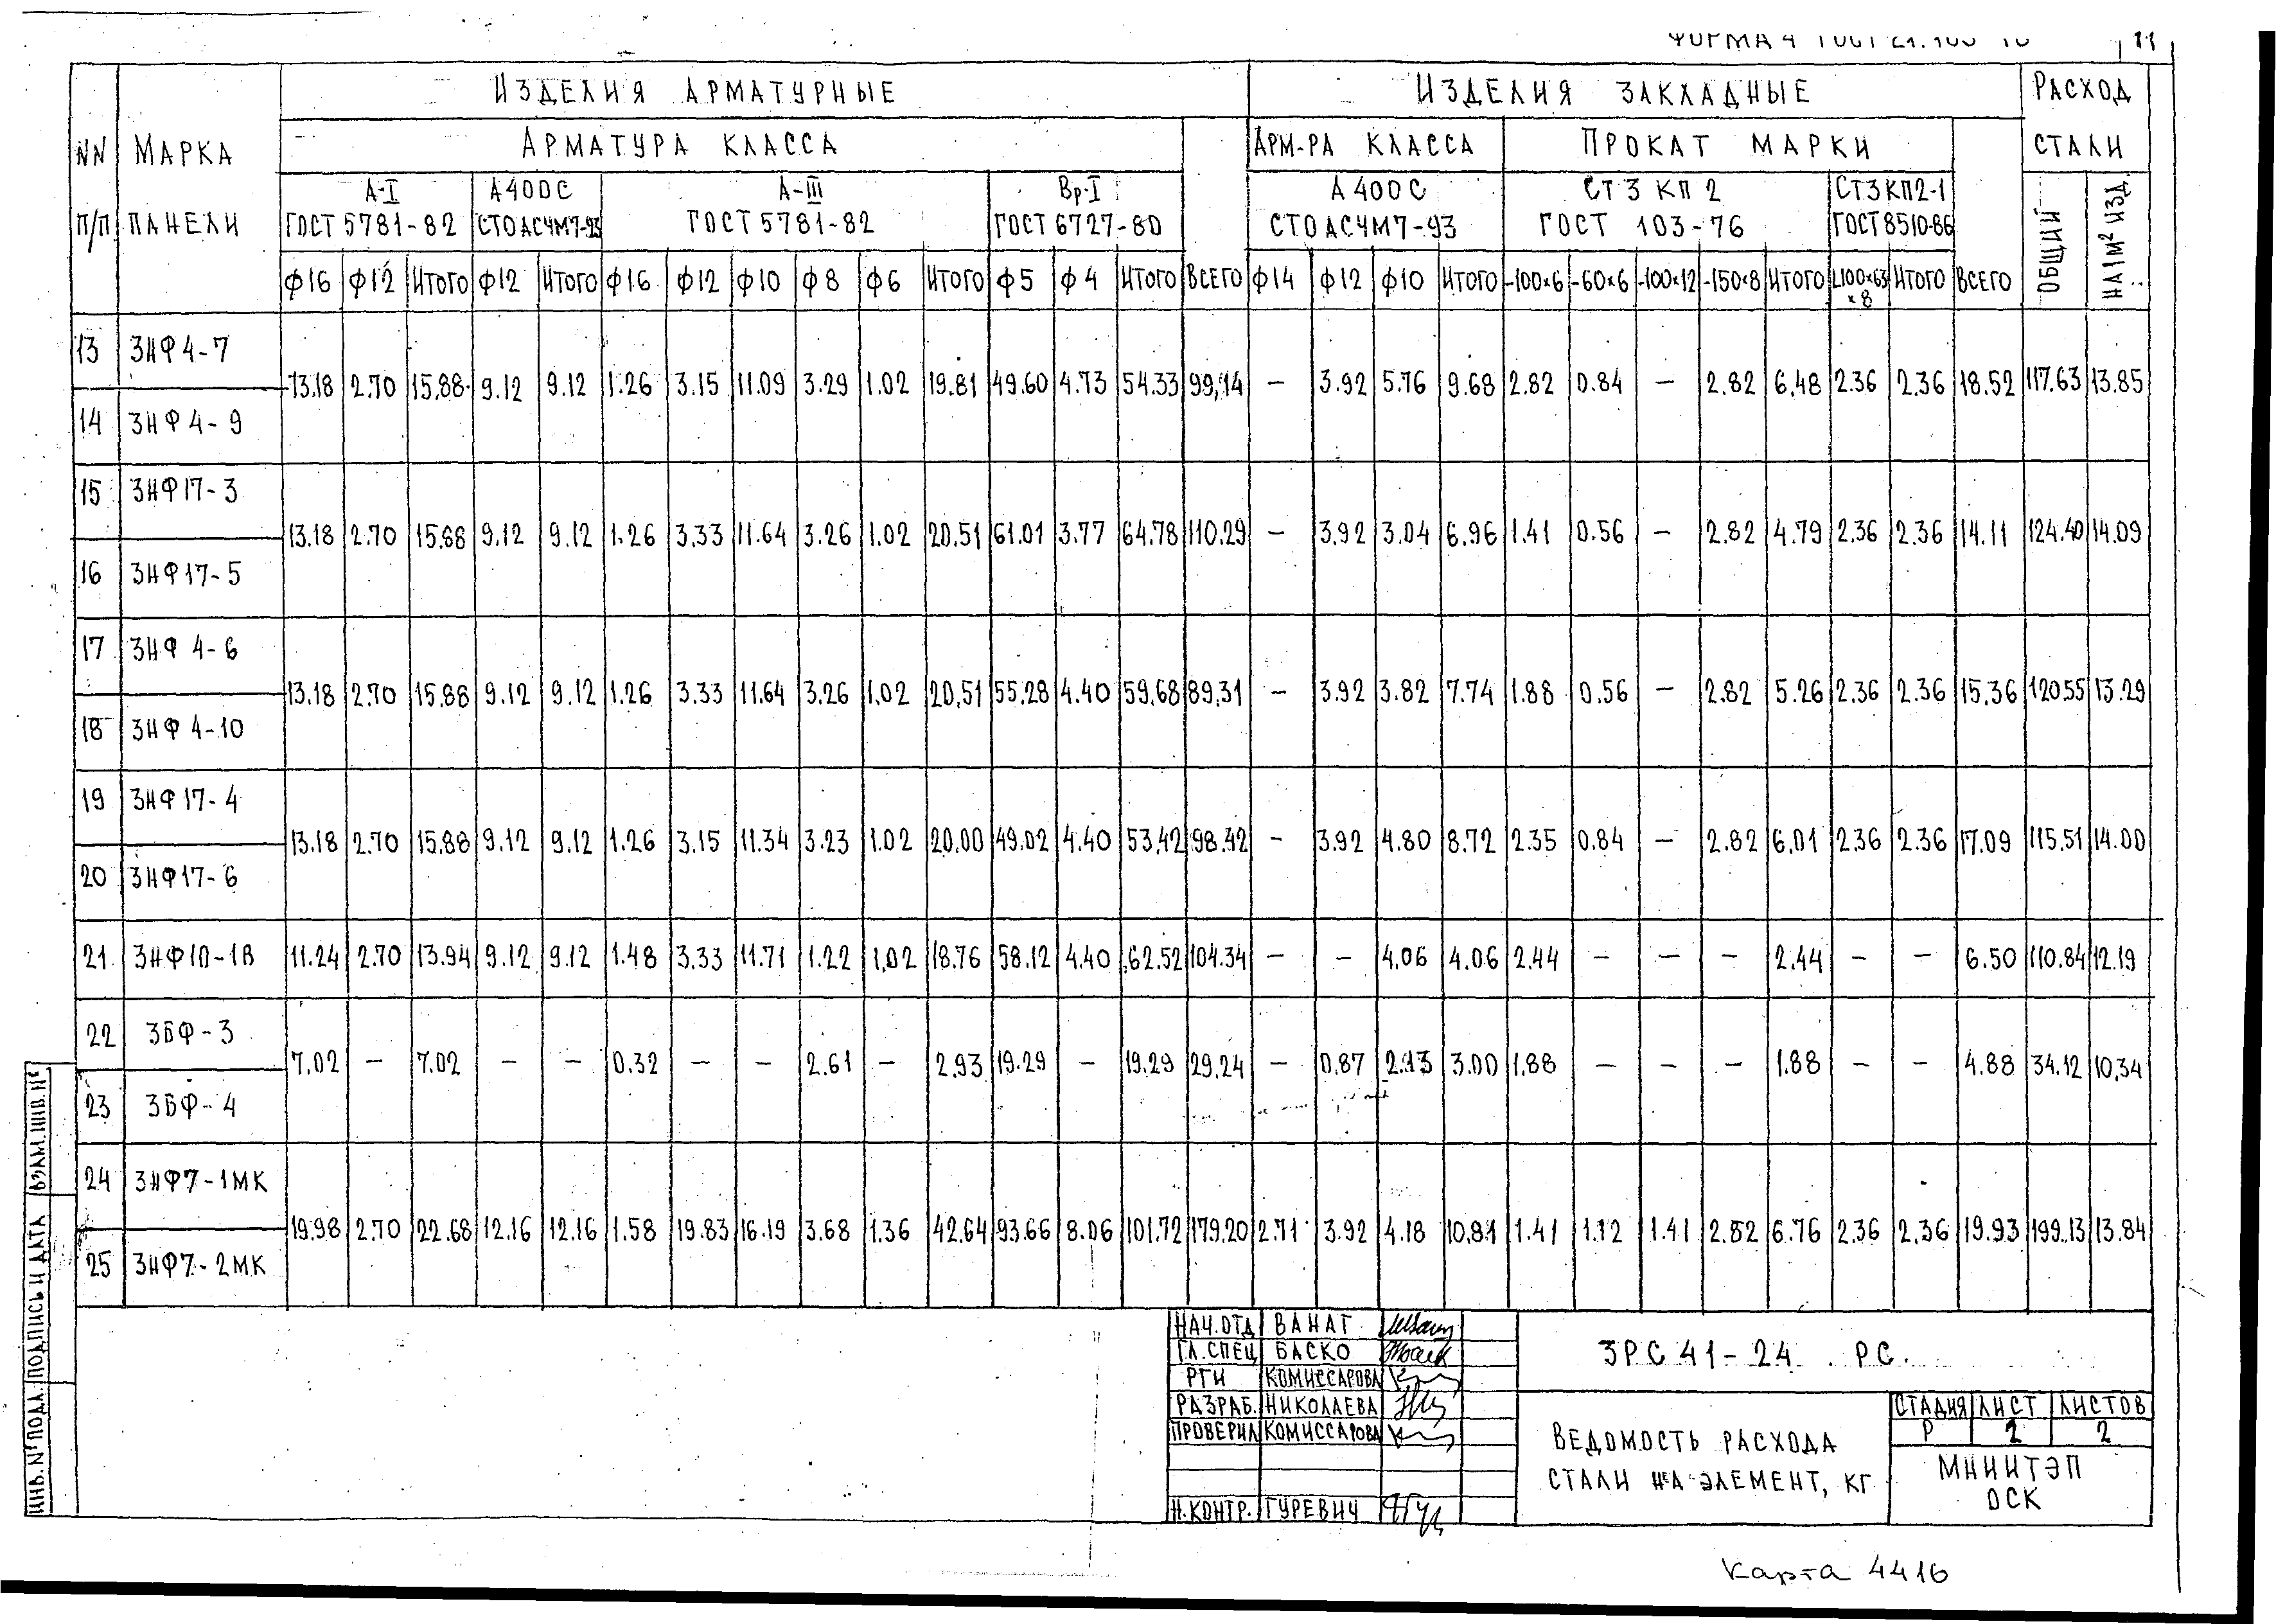 ФОРМА 4 ГОСТ 21.
11
NN П/П
МАРКА ПАНЕЛИ
ИЗДЕЛИЯ АРМАТУРНЫЕ
ИЗДЕЛИЯ ЗАКЛАДНЫЕ
РАСХОД СТАЛИ
АРМАТУРА КЛАССА
АРМ-РА КЛАССА
ПРОКАТ МАРКИ
А-I ГОСТ 5781-82
А400С СТОАСЧМ7-93
А-III ГОСТ 5781-82
Вр-I ГОСТ 6727-80
А400С СТОАСЧМ7-93
СТ 3 КП 2 ГОСТ 103-76
СТ3КП2-1 ГОСТ 8510-86
ОБЩИЙ
НА 1М² ИЗД.
Ф16 Ф12 ИТОГО Ф12 ИТОГО Ф16 Ф12 Ф10 Ф8 Ф6 ИТОГО Ф5 Ф4 ИТОГО ВСЕГО Ф14 Ф12 Ф10 ИТОГО -100×6 -60×6 -100×12 -150×8 ИТОГО L100×63×8 ИТОГО ВСЕГО
13 3НФ4-7
13.18 2.70 15.88 9.12 9.12 1.26 3.15 11.09 3.29 1.02 19.81 49.60 4.73 54.33 99,14 — 3.92 5.76 9.68 2.82 0.84 — 2.82 6.48 2.36 2.36 18.52 117.63 13.85
14 3НФ4-9
15 3НФ17-3
13.18 2.70 15.88 9.12 9.12 1.26 3.33 11.64 3.26 1.02 20.51 61.01 3.77 64.78 110.29 — 3.92 3.04 6.96 1.41 0.56 — 2.82 4.79 2.36 2.36 14.11 124.40 14.09
16 3НФ17-5
17 3НФ4-6
13.18 2.70 15.88 9.12 9.12 1.26 3.33 11.64 3.26 1.02 20.51 55.28 4.40 59.68 89.31 — 3.92 3.82 7.74 1.88 0.56 — 2.82 5.26 2.36 2.36 15.36 120.55 13.29
18 3НФ4-10
19 3НФ17-4
13.18 2.70 15.88 9.12 9.12 1.26 3.15 11.34 3.23 1.02 20.00 49.02 4.40 53.42 98.42 — 3.92 4.80 8.72 2.35 0.84 — 2.82 6.01 2.36 2.36 17.09 115.51 14.00
20 3НФ17-6
21 3НФ10-1В 11.24 2.70 13.94 9.12 9.12 1.48 3.33 11.71 1.22 1.02 18.76 58.12 4.40 62.52 104.34 — — 4.06 4.06 2.44 — — — 2.44 — — 6.50 110.84 12.19
22 3БФ-3
7.02 — 7.02 — — 0.32 — — 2.61 — 2.93 19.29 — 19.29 29.24 — 0.87 2.13 3.00 1.88 — — — 1.88 — — 4.88 34.12 10.34
23 3БФ-4
24 3НФ7-1МК
19.98 2.70 22.68 12.16 12.16 1.58 19.83 16.19 3.68 1.36 42.64 93.66 8.06 101.72 179.20 2.71 3.92 4.18 10.81 1.41 1.12 1.41 2.82 6.76 2.36 2.36 19.93 199.13 13.84
25 3НФ7-2МК
ВЗАМ.ИНВ.Nº
ПОДПИСЬ И ДАТА
ИНВ.Nº ПОДЛ.
НАЧ.ОТД ВАНАГ
ГЛ.СПЕЦ БАСКО
РГИ КОМИССАРОВА
РАЗРАБ. НИКОЛАЕВА
ПРОВЕРИЛ КОМИССАРОВА
Н.КОНТР. ГУРЕВИЧ
3РС 41-24 РС.
ВЕДОМОСТЬ РАСХОДА
СТАЛИ НА ЭЛЕМЕНТ, КГ
СТАДИЯ ЛИСТ ЛИСТОВ
Р 2 2
МНИИТЭП
ОСК
Карта 4416